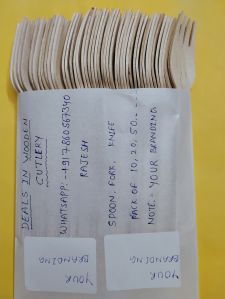 DEALS IN WOODEN
CUTLERY
WHATSAPP:- +917860567340
RAJESH
SPOON, FORK, KNIFE
PACK OF 10, 20, 50 - -
NOTE:- YOUR BRANDING
YOUR
BRANDING
YOUR
BRANDING